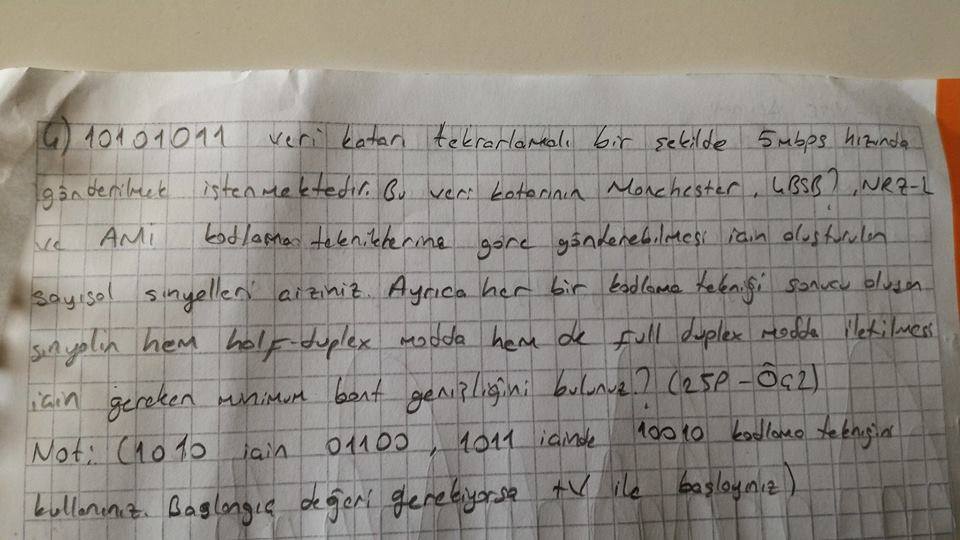 4) 10101011 veri katarı tekrarlamalı bir şekilde 5Mbps hızında
gönderilmek istenmektedir. Bu veri katarının Manchester, 4B5B?, NRZ-L
ve AMI kodlama tekniklerine göre gönderebilmesi için oluşturulan
sayısal sinyalleri çiziniz. Ayrıca her bir kodlama tekniği sonucu oluşan
sinyalin hem half-duplex modda hem de full duplex modda iletilmesi
için gereken minimum bant genişliğini bulunuz? (25P - ÖÇ2)
Not: (1010 için 01100, 1011 içinde 10010 kodlama tekniğini
kullanınız. Başlangıç değeri gerekiyorsa +V ile başlayınız)